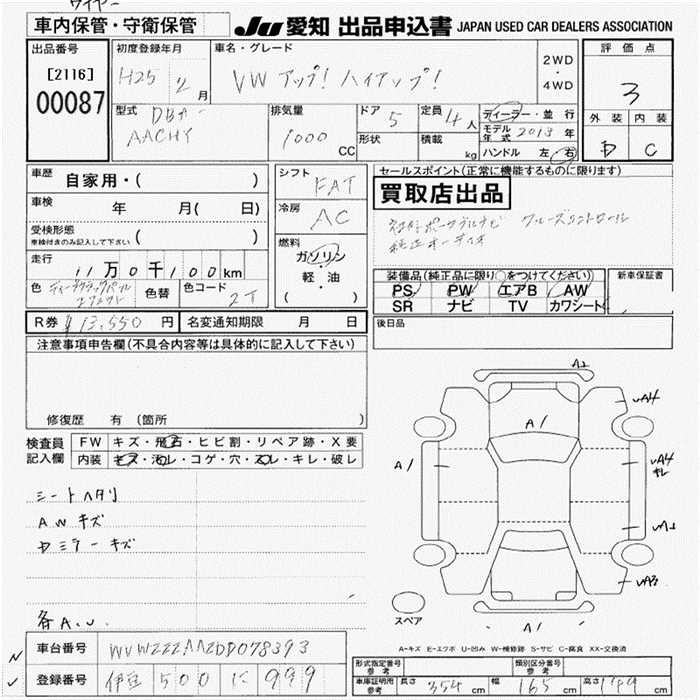 ワイヤー
車内保管・守衛保管
JU 愛知 出品申込書 JAPAN USED CAR DEALERS ASSOCIATION
出品番号
[2116]
00087
初度登録年月
H25 2月
車名・グレード
VW アップ! ハイアップ!
2WD
・
4WD
評価点
3
外装 内装
D C
型式
DBA-
AACHY
排気量
1000
CC
ドア 5
形状
定員 4人
積載 kg
ディーラー・並行
モデル年式 2013年
ハンドル 左・右
車歴 自家用・( )
車検 年 月( 日)
受検形態
車検付きのみ記入して下さい ( )
走行
11万0千100km
色 ディープブラックパール
エフェクト
色替
色コード
2T
シフト
FAT
冷房
AC
燃料
ガソリン
軽・油
( )
セールスポイント(正常に機能するものに限ります)
買取店出品
純正ポータブルナビ クルーズコントロール
純正オーディオ
装備品(純正品に限り○をつけてください)
PS PW エアB AW
SR ナビ TV カワシート
新車保証書
後日品
R券 ¥13,550円
名変通知期限 月 日
注意事項申告欄(不具合内容等は具体的に記入して下さい)
修復歴 有 (箇所 )
検査員
記入欄
FW キズ・飛石・ヒビ割・リペア跡・X要
内装 キズ・汚レ・コゲ・穴・スレ・キレ・破レ
シートヘタリ
AWキズ
各A.U.
A2
UA4
A1
A1
UA4
キレ
UA3
A1
スペア
A-キズ E-エクボ U-凹み W-補修跡 S-サビ C-腐食 XX-交換済
車台番号 WVWZZZAAZDD078393
登録番号 伊豆 500 に 999
形式指定番号
参考
類別区分番号
参考
車庫証明用
参考
長さ 354cm 幅 165cm 高さ 149cm